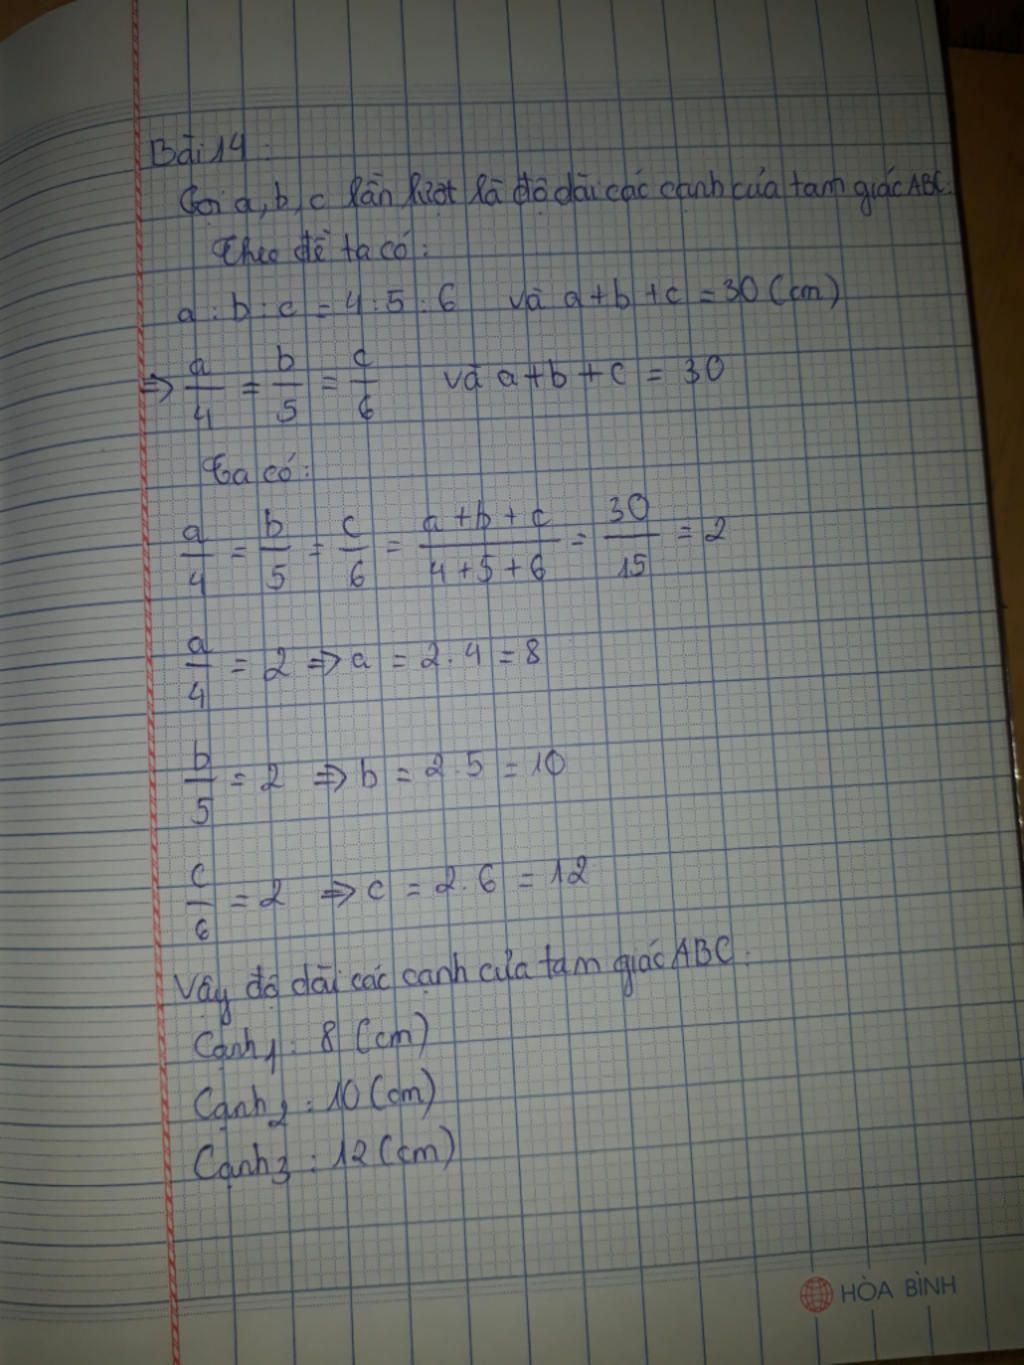 Bài 14:
Gọi a, b, c lần lượt là độ dài các cạnh của tam giác ABC:
Theo đề ta có:
a : b : c = 4 : 5 : 6 và a + b + c = 30 (cm)
⇒ a/4 = b/5 = c/6 và a + b + c = 30
Ta có:
a/4 = b/5 = c/6 = (a + b + c)/(4 + 5 + 6) = 30/15 = 2
a/4 = 2 ⇒ a = 2.4 = 8
b/5 = 2 ⇒ b = 2.5 = 10
c/6 = 2 ⇒ c = 2.6 = 12
Vậy độ dài các cạnh của tam giác ABC:
Cạnh 1: 8 (cm)
Cạnh 2: 10 (cm)
Cạnh 3: 12 (cm)
HÒA BÌNH